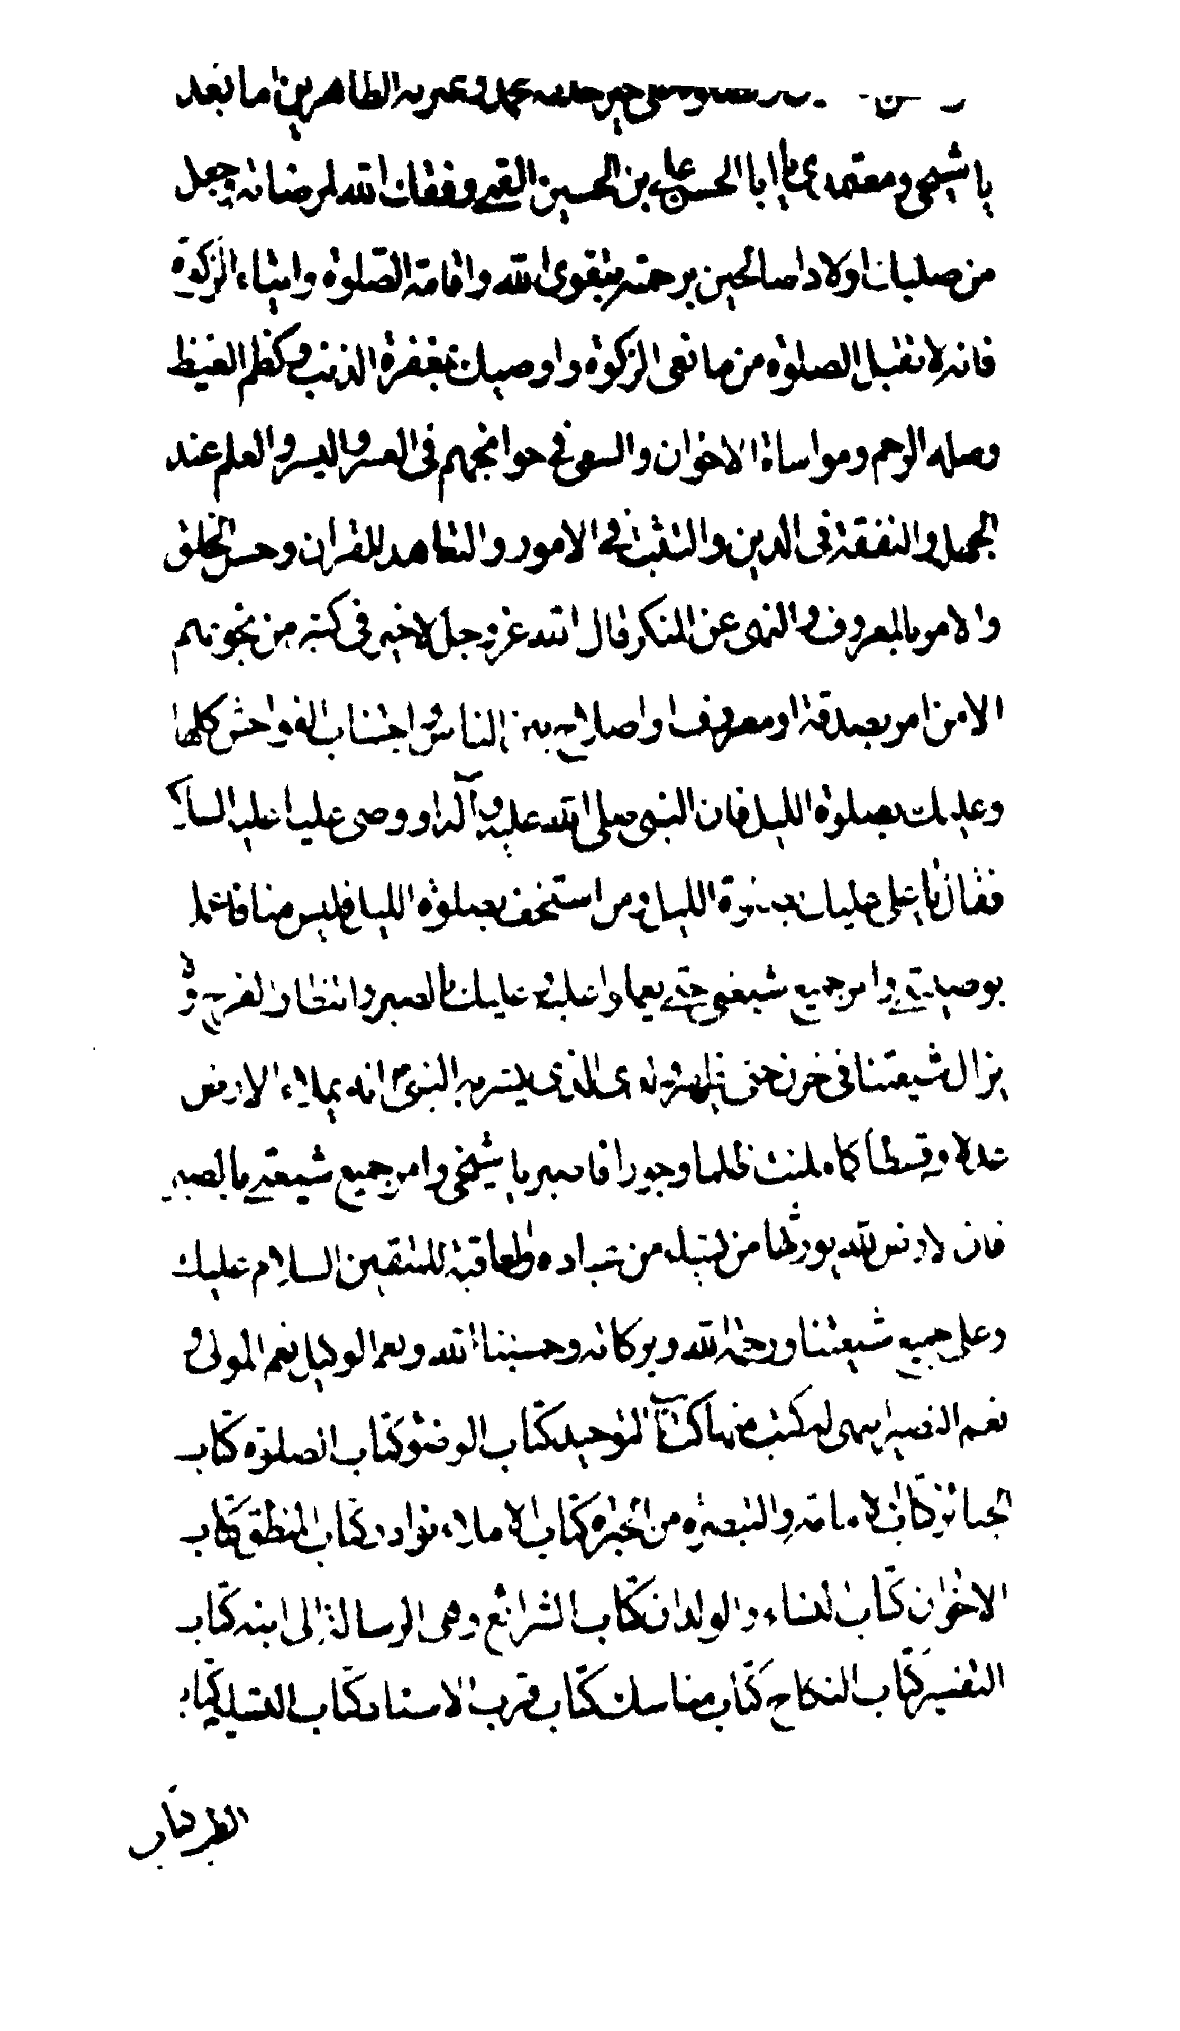 خير خلقه محمد وعترته الطاهرين اما بعد
يا شيخي ومعتمدي يا ابا الحسن علي بن الحسين القمي وفقك الله لمرضاته وجعل
من صلبك اولادا صالحين برحمته بتقوى الله واقامة الصلوة وايتاء الزكوة
فانه لا تقبل الصلوة من مانعي الزكوة واوصيك بمغفرة الذنب وكظم الغيظ
وصلة الرحم ومواساة الاخوان والسعي في حوائجهم في العسر واليسر والعلم عند
الجهل والتفقه في الدين والتثبت في الامور والتعاهد للقران وحسن الخلق
والامر بالمعروف والنهي عن المنكر قال الله عز وجل لا خير في كثير من نجويهم
الا من امر بصدقة او معروف او اصلاح بين الناس واجتناب الفواحش كلها
وعليك بصلوة الليل فان النبي صلى الله عليه وآله اووصى عليا عليه السلا
فقال يا علي عليك بصلوة الليل ومن استخف بصلوة الليل فليس منا فاعمل
بوصيتي وامر جميع شيعتي حتى يعملوا عليه وعليك بالصبر وانتظار الفرج ولا
يزال شيعتنا في حزن حتى يظهر ولدي الذي بشر به النبي ص انه يملاء الارض
عدلا وقسطا كما ملئت ظلما وجورا فاصبر يا شيخي وامر جميع شيعتي بالصبر
فان الارض لله يورثها من يشاء من عباده والعاقبة للمتقين السلام عليك
وعلى جميع شيعتنا ورحمة الله وبركاته وحسبنا الله ونعم الوكيل نعم المولى و
نعم النصير انتهى له كتب منها كتاب التوحيد كتاب الوضوء كتاب الصلوة كتاب
الجنائز كتاب الامامة والتبصرة من الحيرة كتاب الاملاء نوادر كتاب المنطق كتاب
الاخوان كتاب النساء والولدان كتاب الشرائع وهي الرسالة الى ابنه كتاب
التفسير كتاب النكاح كتاب مناسك كتاب قرب الاسناد كتاب التسليم كتاب
الطب كتاب